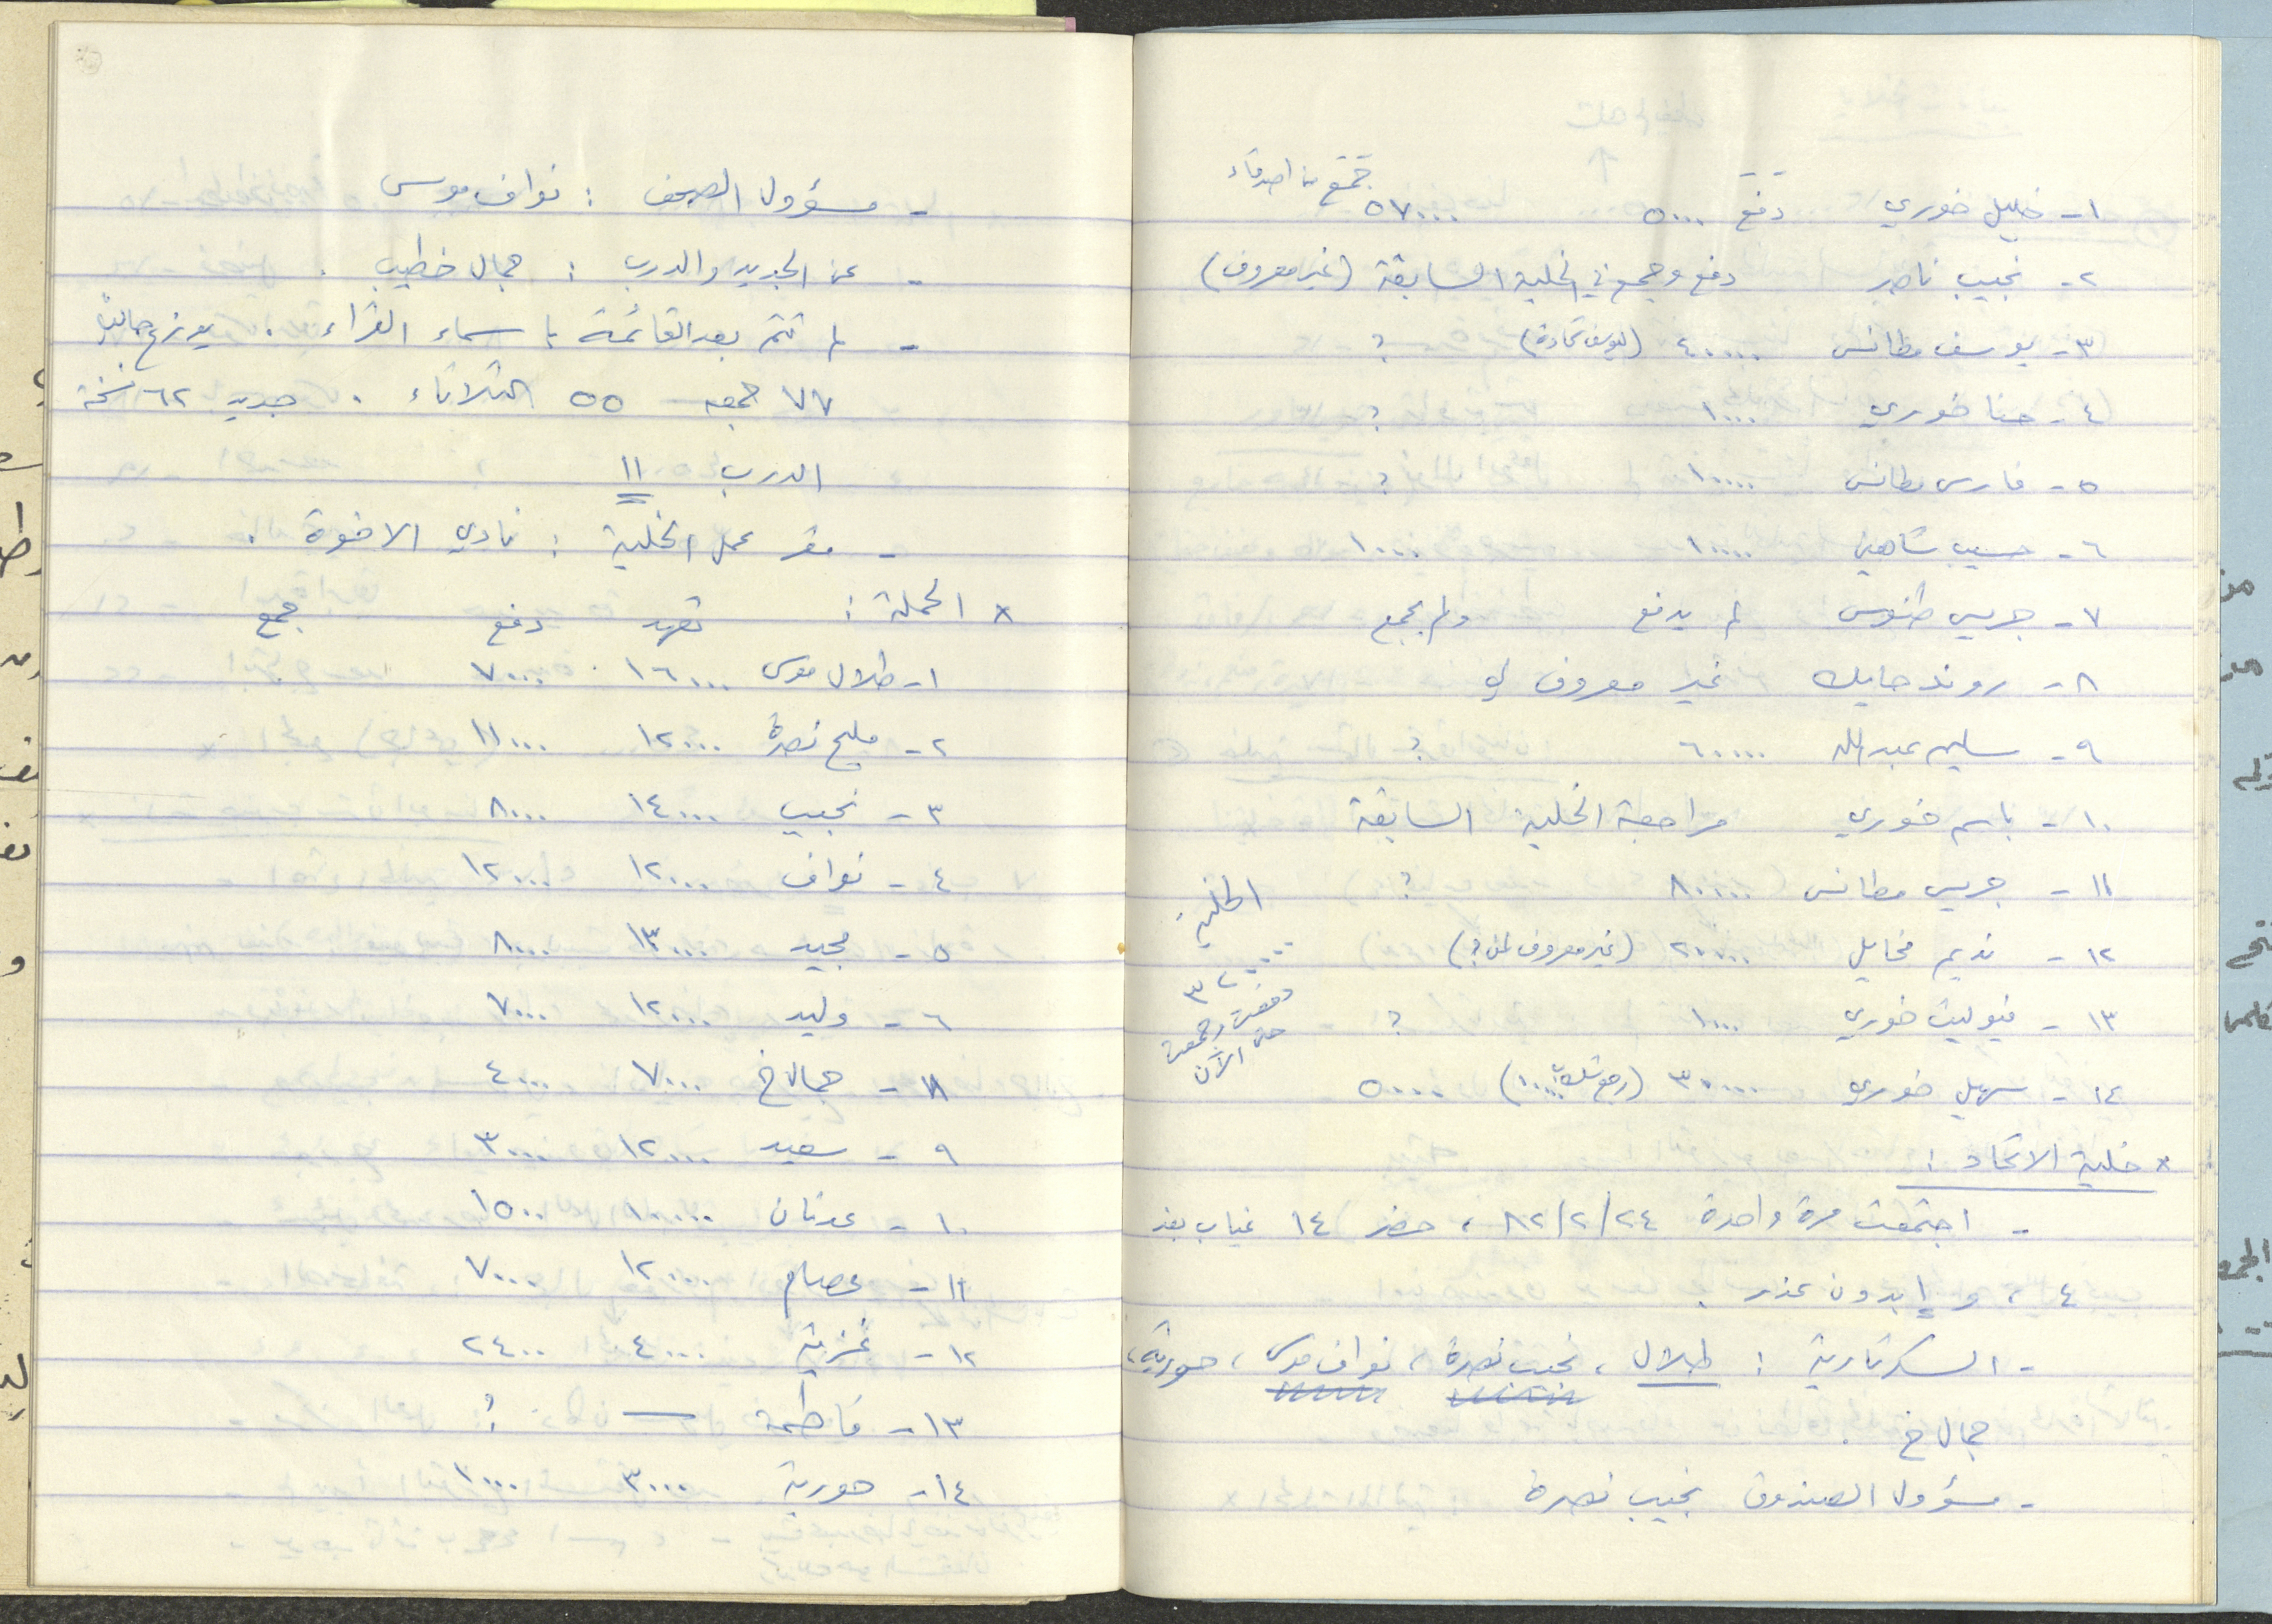 ١- خليل خوري دفع ٥٠٠٠ ٥٧٠٠٠ جمع من اصدقاء
٢- نجيب ناصر دفع وجمع في الخلية السابقة (غير معروف)
٣- يوسف مطانس ٤٠٠٠٠ ؟
٤- حنا خوري ١٠٠٠ ؟
٥- فارس مطانس ١٠٠٠٠ ؟
٦- حسيب شاهين ١٠٠٠٠ ١٠٠٠٠
٧- جريس طنوس لم يدفع ولم يجمع
٨- روند حايك غير معروف لي
٩- سليم عبدالله ٦٠٠٠٠ ؟
١٠- باسم خوري مراجعة الخلية السابقة
١١- جريس مطانس ٨٠٠٠٠ ؟
١٢- نديم مخايل ٢٠٠٠٠ (غير معروف لمن؟)
١٣- فيوليت خوري ١٠٠٠ ؟
١٤- سهيل خوري ٣٠٠٠٠ ٥٠٠٠٠
الخلية
دفعت وجمعت
حتى الآن
× خلية الاتحاد :
- اجتمعت مرة واحدة ٨٢/٢/٢٤ ، حضر ١٤ غياب بعذر
٤ ، و ١ بدون عذر .
- السكرتارية : طلال ، نجيب نصرة ، نواف موسى ، حورية ،
جمال خ .
- مسؤول الصندوق نجيب نصرة
- مسؤول الصحف : نواف موسى
- عن الجديد والدرب : جمال خطيب .
- لم تتم بعد القائمة باسماء القراء . يوزع حالياً
٧٧ جمعه ٥٥ الثلاثاء . جديد ٦٢ نسخة
الدرب ١١
- مقر عمل الخلية : نادي الاخوة .
× الحملة : تعهد دفع جمع
١- طلال موسى ١٦٠٠٠ ٧٠٠٠
٢- مليح نصرة ١٢٠٠٠ ١١٠٠٠
٣- نجيب ١٤٠٠٠ ٨٠٠٠
٤- نواف ١٢٠٠٠ ١٢٠٠٠
٥- مجيد ١٣٠٠٠ ٨٠٠٠
٦- وليد ١٢٠٠٠ ٧٠٠٠
٨- جمال خ ٧٠٠٠ ٤٠٠٠
٩- سعيد ١٢٠٠٠ ٣٠٠٠
١٠- عدنان ١٠٠٠٠ ١٥٠٠
١١- عصام ١٢٠٠٠ ٧٠٠٠
١٢- غزية ٤٠٠٠ ٢٤٠٠
١٣- فاطمة — ؟
١٤- حورية ٣٠٠٠ ١٠٠٠